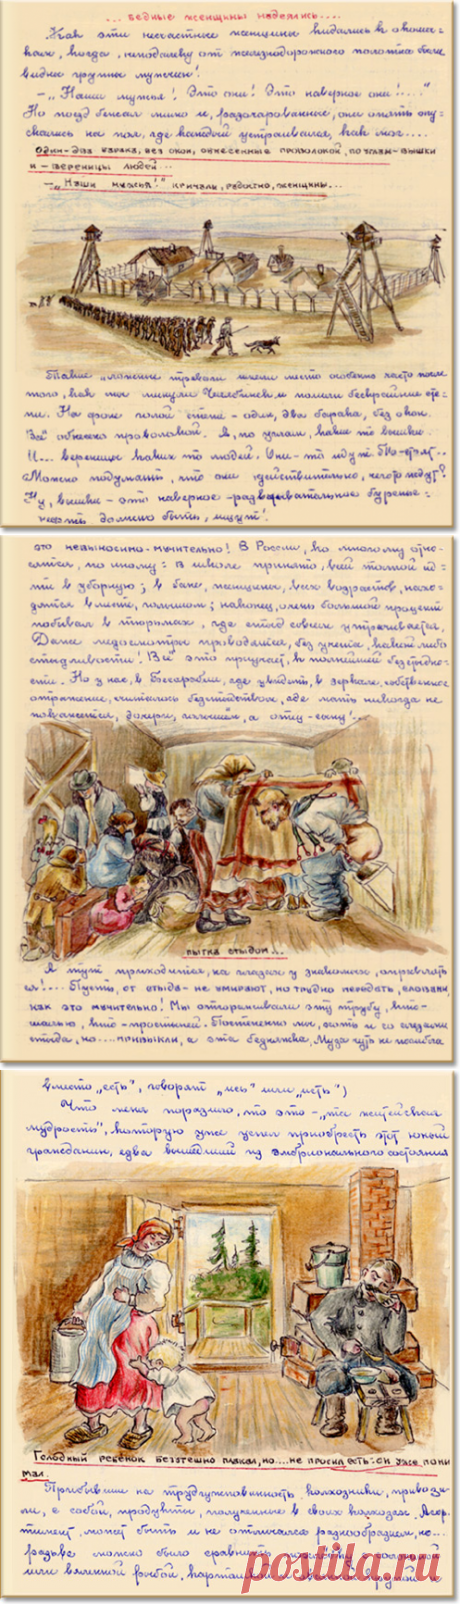 ... бедные женщины надеялись....
Как эти несчастные женщины кидались к окош=
кам, когда, неподалеку от железнодорожного полотна были
видны группы мужчин!
– „Наши мужья! Это они! Это наверное они!...."
Но поезд бежал мимо и, разочарованные, они опять опу=
скались на пол, где каждый устраивался, как мог....
Один-два барака, без окон, обнесенные проволокой, по углам-вышки
и – вереницы людей...
– „Наши мужья!" кричали, радостно, женщины...
Такие ложные тревоги имели место особенно часто после
того, как мы минули Челябинск и пошли бескрайние сте=
пи. На фоне голой степи – один, два барака, без окон.
Всё обнесено проволокой. А, по углам, какие то вышки.
И... вереницы каких то людей. Они-то идут
Можно подумать, что они действительно, чего то ждут?
Ну, вышки – это наверное – разведывательное бурение:
нефть должно быть, ищут!
это невыносимо-мучительно! В России, ко многому отно=
сятся, по иному: в школе принято, всей толпой ид=
ти в уборную; в бане, женщины, всех возрастов, нахо=
дятся вместе, голышом; наконец, очень большой процент
побывал в тюрьмах, где стыд совсем утрачивается.
Даже медосмотры проводятся, без учета, какой либо
стыдливости! Всё это приучает, к полнейшей
Но у нас, в Бессарабии, где увидать, в зеркале, собственное
отражение, считалось бесстыдством, где мать никогда не
покажется, дочери, голышом, а отец – сыну!...
пытка стыдом...
А тут приходится, на глазах у знакомого, оправлять
ся!... Пусть, от стыда – не умирают, но трудно передать, словами,
как это мучительно! Мы отгораживали эту трубу, кто–
шалью, кто – простыней. Постепенно мы, хоть и со слезами
стыда, но.... привыкли, а эта бедняжка, Муза чуть не погибла
вместо „есть", говорят „ись" или „исть")
Что меня поразило, то это – „та житейская
мудрость", которую уже успел приобресть этот юный
гражданин, едва вышедший из эмбрионального состояния
Голодный ребенок безутешно плакал, но... не просил есть: он уже пони
мал.
Прибывшие на трудгужповинность колхозники, привози=
ли, с собой, продукты, полученные в своих колхозах. Ассор=
тимент, может быть и не отличался разнообразием, но...
разве можно было сравнить с соленой
или вяленной рыбой, картошкой